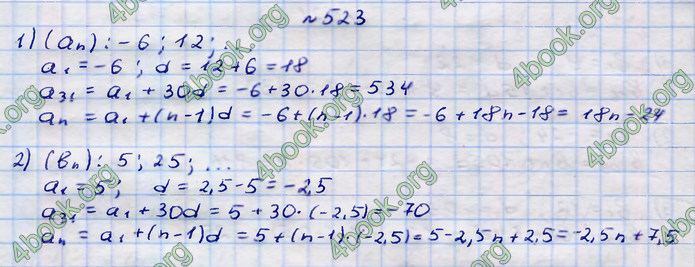 № 523
1) (aₙ): -6; 12;
a₁ = -6; d = 12+6 = 18
a₃₁ = a₁ + 30d = -6+30·18 = 534
aₙ = a₁ + (n-1)d = -6+(n-1)·18 = -6+18n-18 = 18n-24
2) (bₙ): 5; 25; ...
a₁ = 5; d = 2,5-5 = -2,5
a₃₁ = a₁ + 30d = 5 + 30·(-2,5) = -70
aₙ = a₁ + (n-1)d = 5+(n-1)·(-2,5) = 5-2,5n+2,5 = -2,5n+7,5
4book.org
4book.org
4book.org
4book.org
4book.org
4book.org
4book.org
4book.org